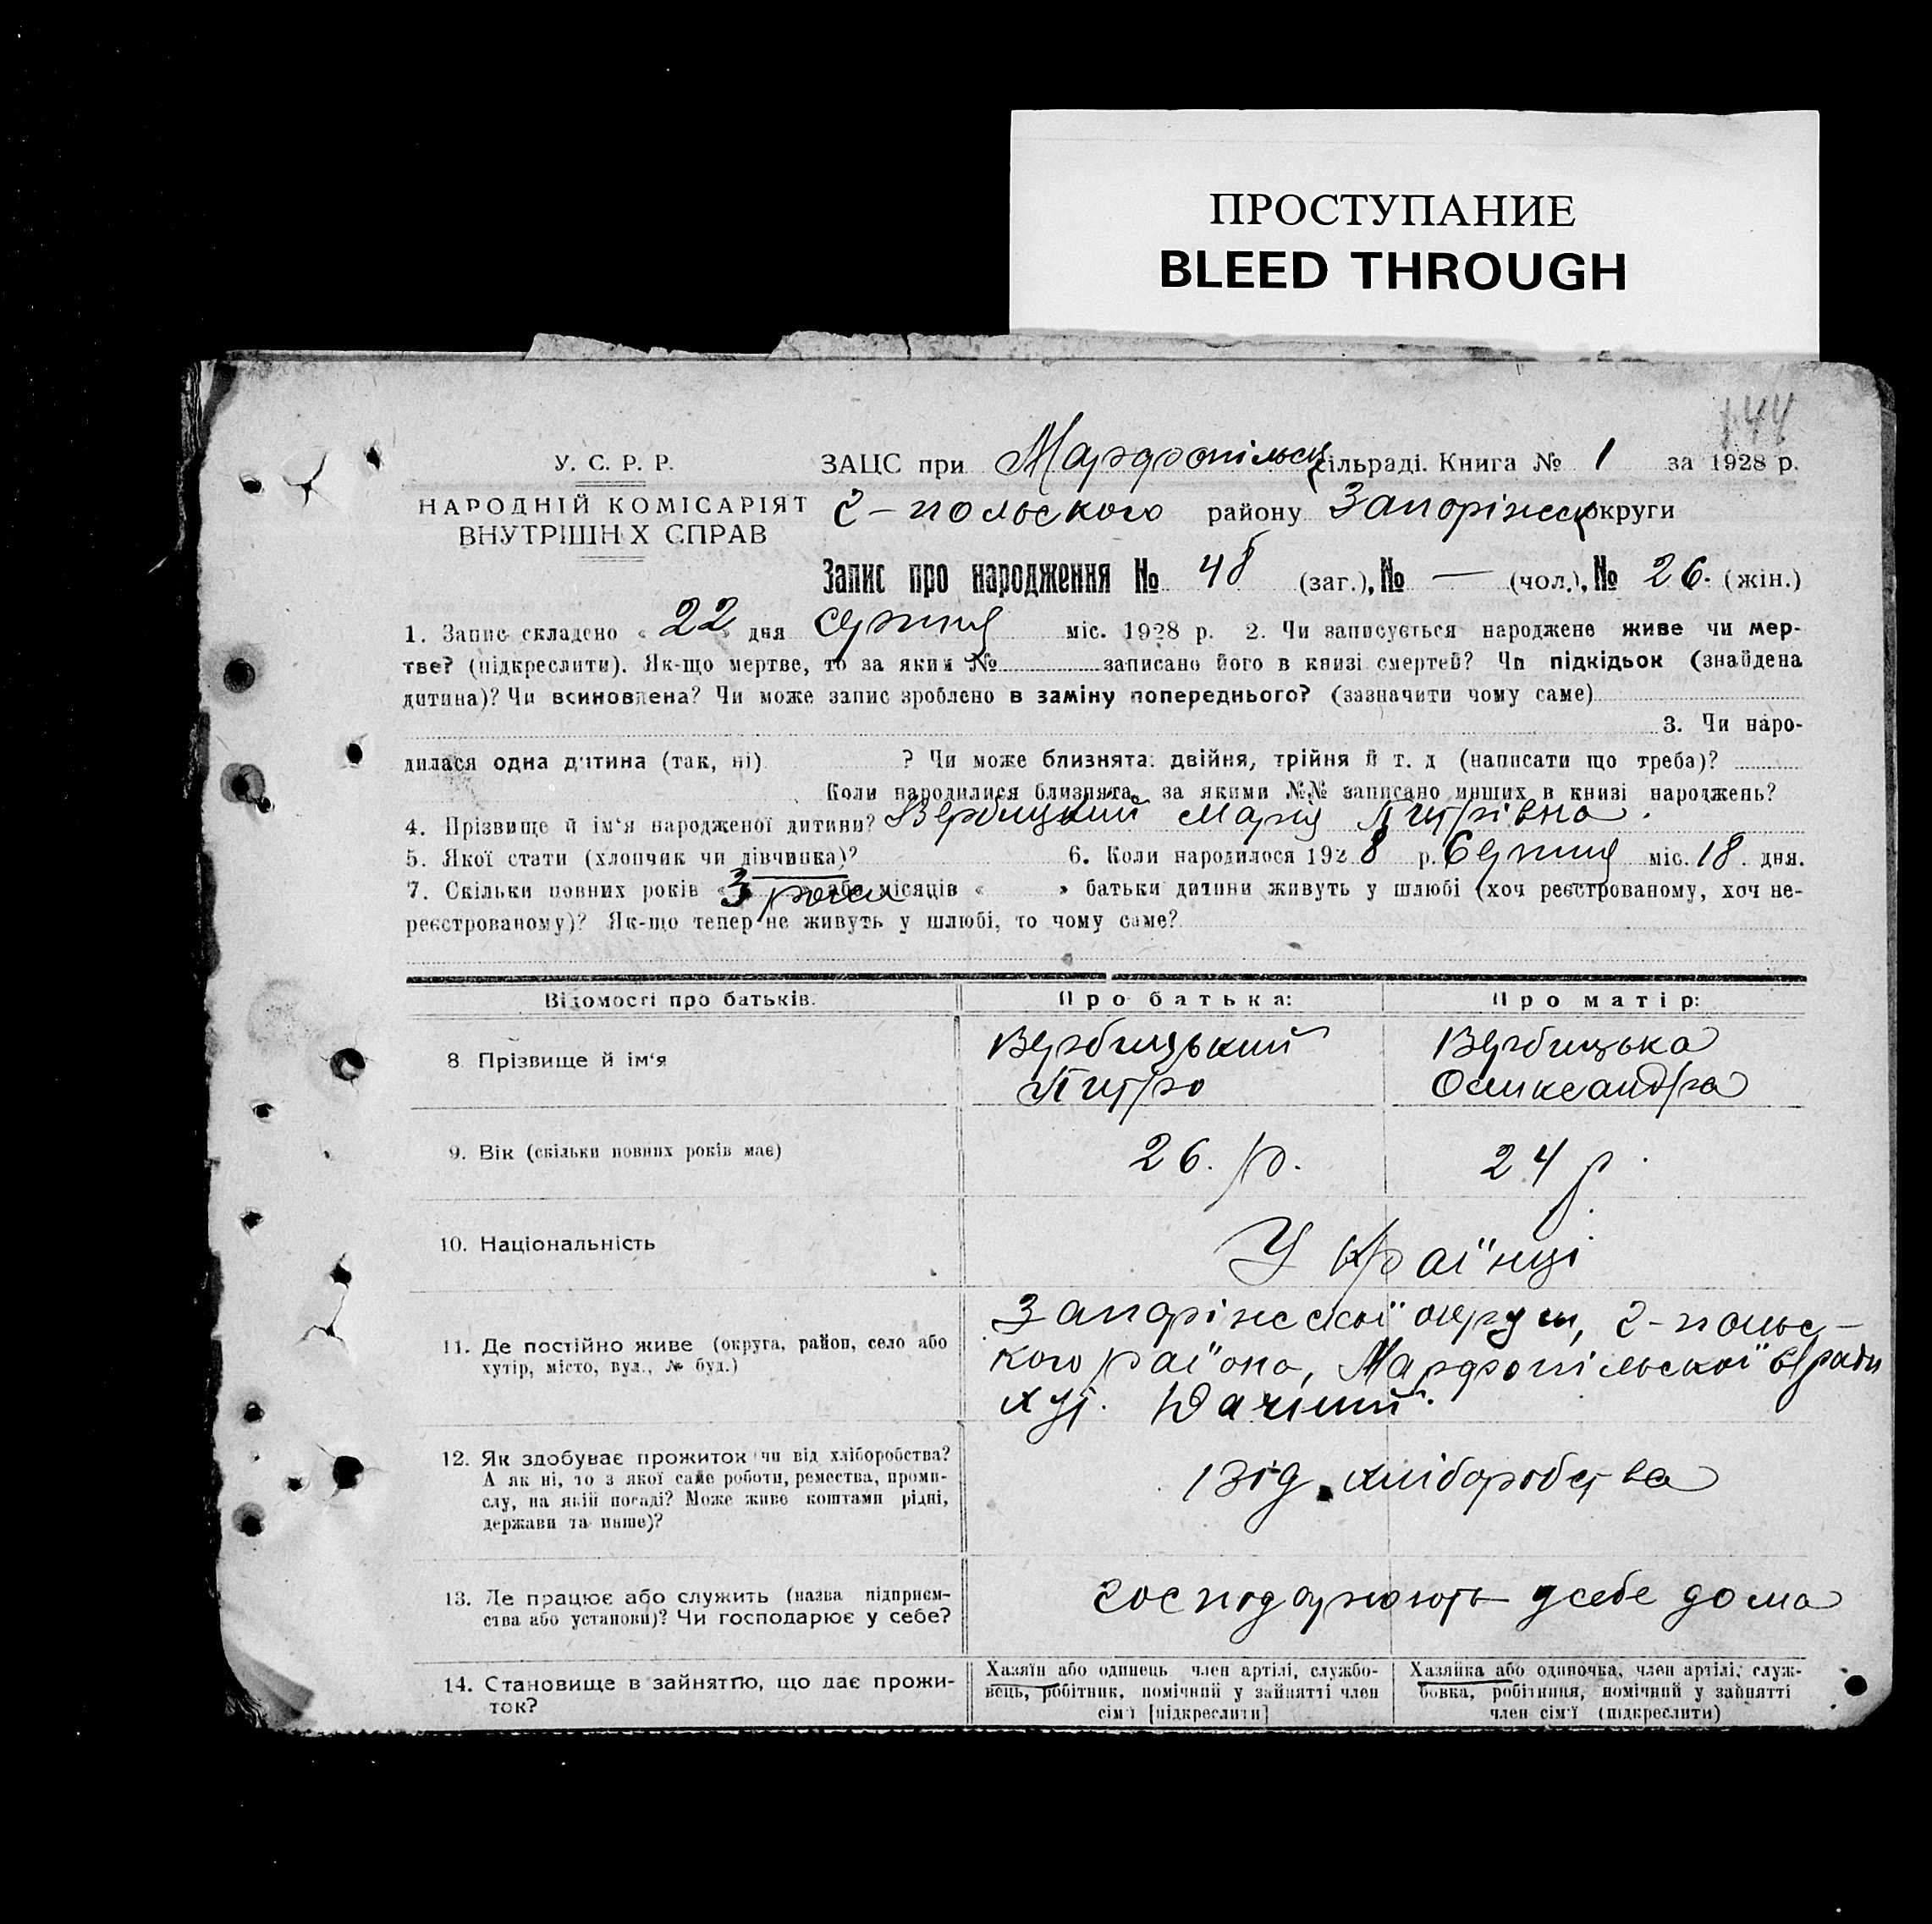 ПРОСТУПАНИЕ
BLEED THROUGH
144
У. С. Р. Р.
НАРОДНІЙ КОМІСАРІЯТ
ВНУТРІШН Х СПРАВ
ЗАЦС при Марфопільськ сільраді. Книга № 1 за 1928 р.
2-польского району Запоріжськ округи
Запис про народження № 48 (заг.), № — (чол.), № 26. (жін.)
1. Запис складено « 22 » дня серпня міс. 1928 р. 2. Чи записується народжене живе чи мер-
тве? (підкреслити). Як-що мертве, то за яким № записано його в книзі смертей? Чи підкідьок (знайдена
дитина)? Чи всиновлена? Чи може запис зроблено в заміну попереднього? (зазначити чому саме)
3. Чи наро-
дилася одна дитина (так, ні) ? Чи може близнята: двійня, трійня й т. д (написати що треба)?
Коли народилися близнята, за якими №№ записано инших в книзі народжень?
4. Прізвище й ім'я народженої дитини? Вербицький Марія Питрівна.
5. Якої стати (хлопчик чи дівчинка)? 6. Коли народилося 1928 р. Серпня міс. 18. дня.
7. Скільки повних років « 3 роки » або місяців « » батьки дитини живуть у шлюбі (хоч реєстрованому, хоч не-
реєстрованому)? Як-що тепер не живуть у шлюбі, то чому саме?
Відомості про батьків. Про батька: Про матір:
8. Прізвище й ім'я Вербицький Питро Вербицька Олександра
9. Вік (скільки повних років має) 26. р. 24 р.
10. Національність Українці
11. Де постійно живе (округа, район, село або
хутір, місто, вул., № буд.)
Запоріжської округи, 2-польс-
кого раїона, Марфопільської с/ради
хут. Дачний.
12. Як здобуває прожиток чи від хліборобства?
А як ні, то з якої саме роботи, ремества, проми-
слу, на якій посаді? Може живе коштами рідні,
держави та инше)?
Від хліборобства
13. Де працює або служить (назва підприєм-
ства або установи)? Чи господарює у себе?
господарюють у себе дома
14. Становище в зайняттю, що дає прожи-
ток?
Хазяїн або одинець член артілі, службо-
вець, робітник, помічний у зайнятті член
сім'ї [підкреслити]
Хазяйка або одиночка, член артілі, служ-
бовка, робітниця, помічний у зайнятті
член сім'ї (підкреслити)